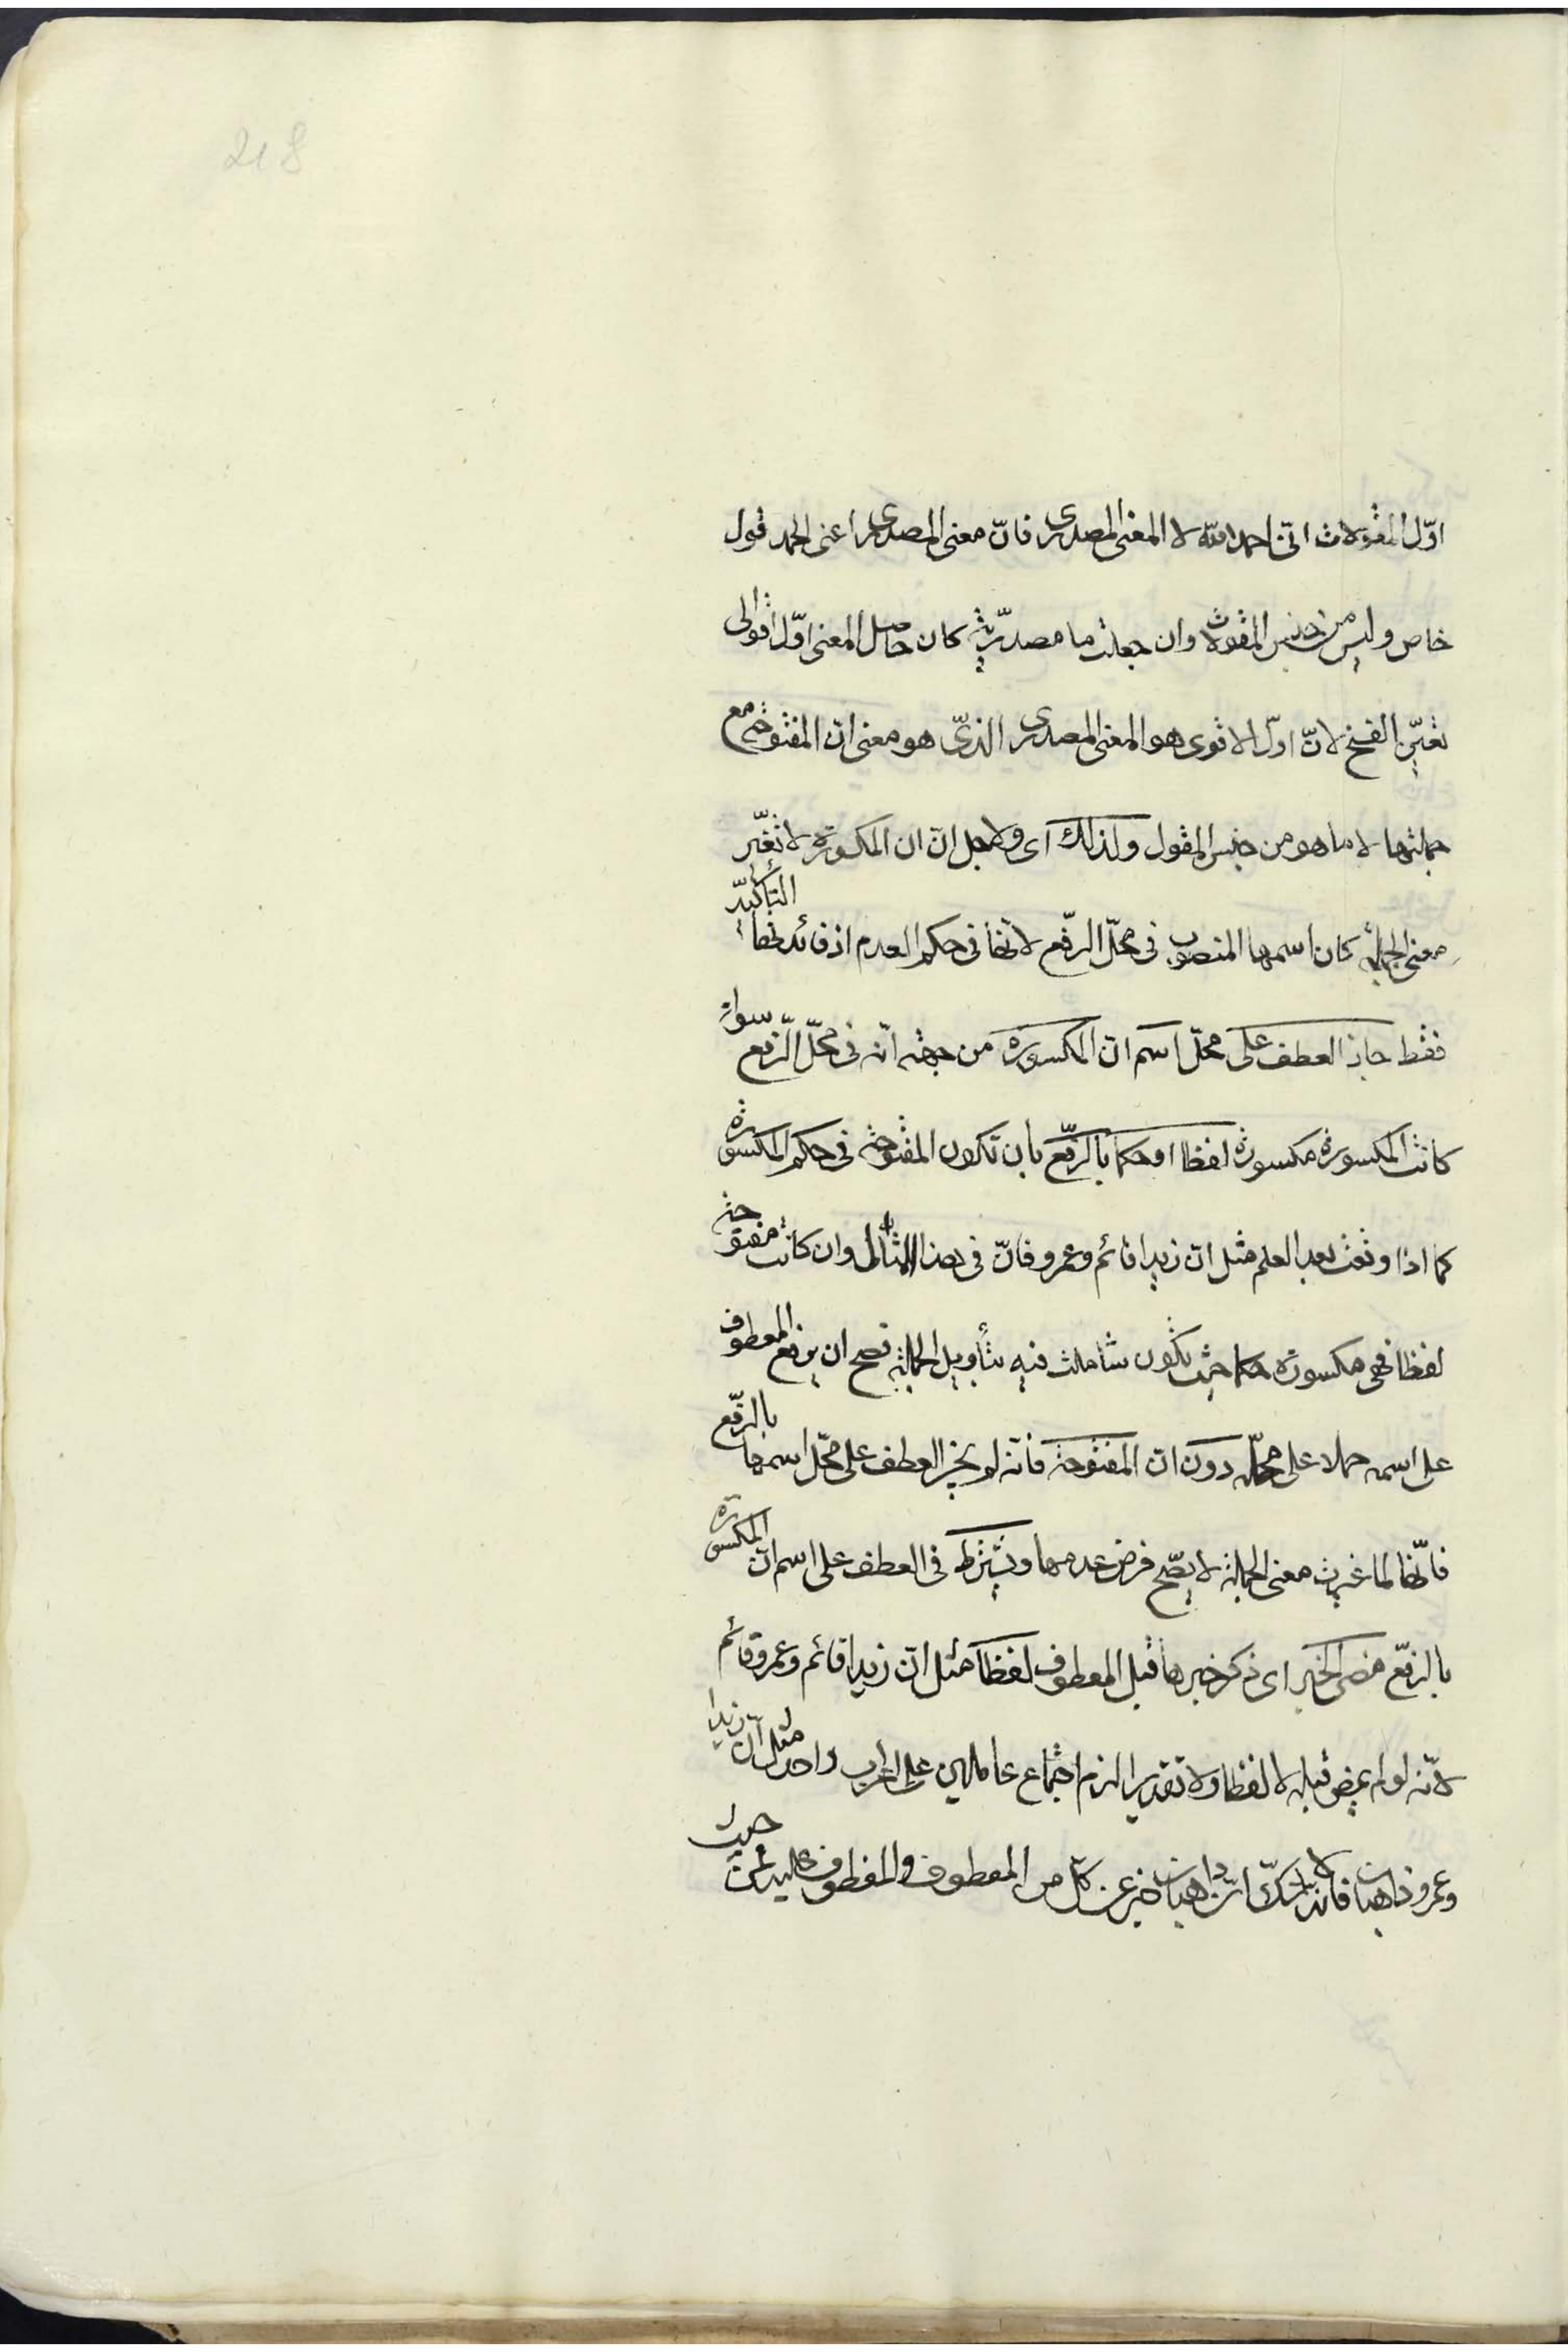 218
اوّل المقولات انّى احمد الله لا المعنى المصدرى فانّ معنى المصدرى اعنى الحمد قول
خاص وليس من جنس المقولات وان جعلت ما مصدريّة كان حاصل المعنى اوّل اقوالى
تعيّن الفتح لانّ اوّل الاقوى هو المعنى المصدرى الذىّ هو معنى انّ المفتوحة مع
جملتها لا ما هو من جنس المقول ولذلك اى ولاجل انّ ان المكسورة لا تغيّر
معنى الجملة كان اسمها المنصوب فى محلّ الرّفع لانّها فى حكم العدم اذ فائدتها التأكيد
فقط جاز العطف على محلّ اسم انّ المكسورة من جهة انّه فى محلّ الرّفع سواء
كانت المكسورة مكسورة لفظا او حكما بالرّفع بان تكون المفتوحة فى حكم المكسورة
كما اذا وقعت بعد العلم مثل انّ زيدا قائم وعمرو فانّ فى هذا المثال وان كانت مفتوحة
لفظا فهى مكسورة حكما حيث تكون مع ما عملت فيه بتأويل الجملة فصح ان يرفع المعطوف
على اسمه حملا على محلّه دون انّ المفتوحة فانّه لم يجز العطف على محلّ اسمها بالرّفع
فانّها لما غيرت معنى الجملة لا يصّح فرض عدمها ويشترط فى العطف على اسم انّ المكسورة
بالرّفع مضى الخبر اى ذكر خبرها قبل المعطوف لفظا مثل انّ زيدا قائم وعمرو قائم
لانّه لو لم يمض قبله لا لفظا ولا تقديرا لزم اجتماع عاملين على اعراب واحد مثل انّ زيدا
وعمرو ذاهبان فانه لا شكّ انّ ذاهبان خبر عن كلّ من المعطوف والمعطوف عليه فمن حيث